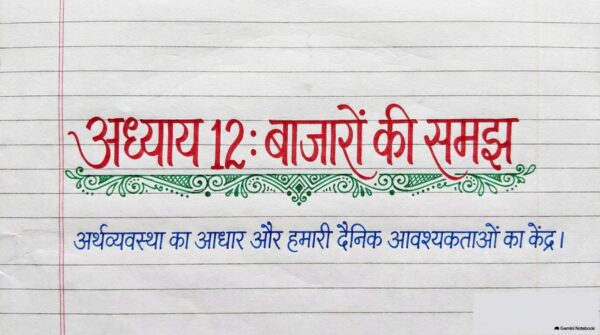 अध्याय 12: बाजारों की समझ
अर्थव्यवस्था का आधार और हमारी दैनिक आवश्यकताओं का केंद्र।
Gemini Notebook